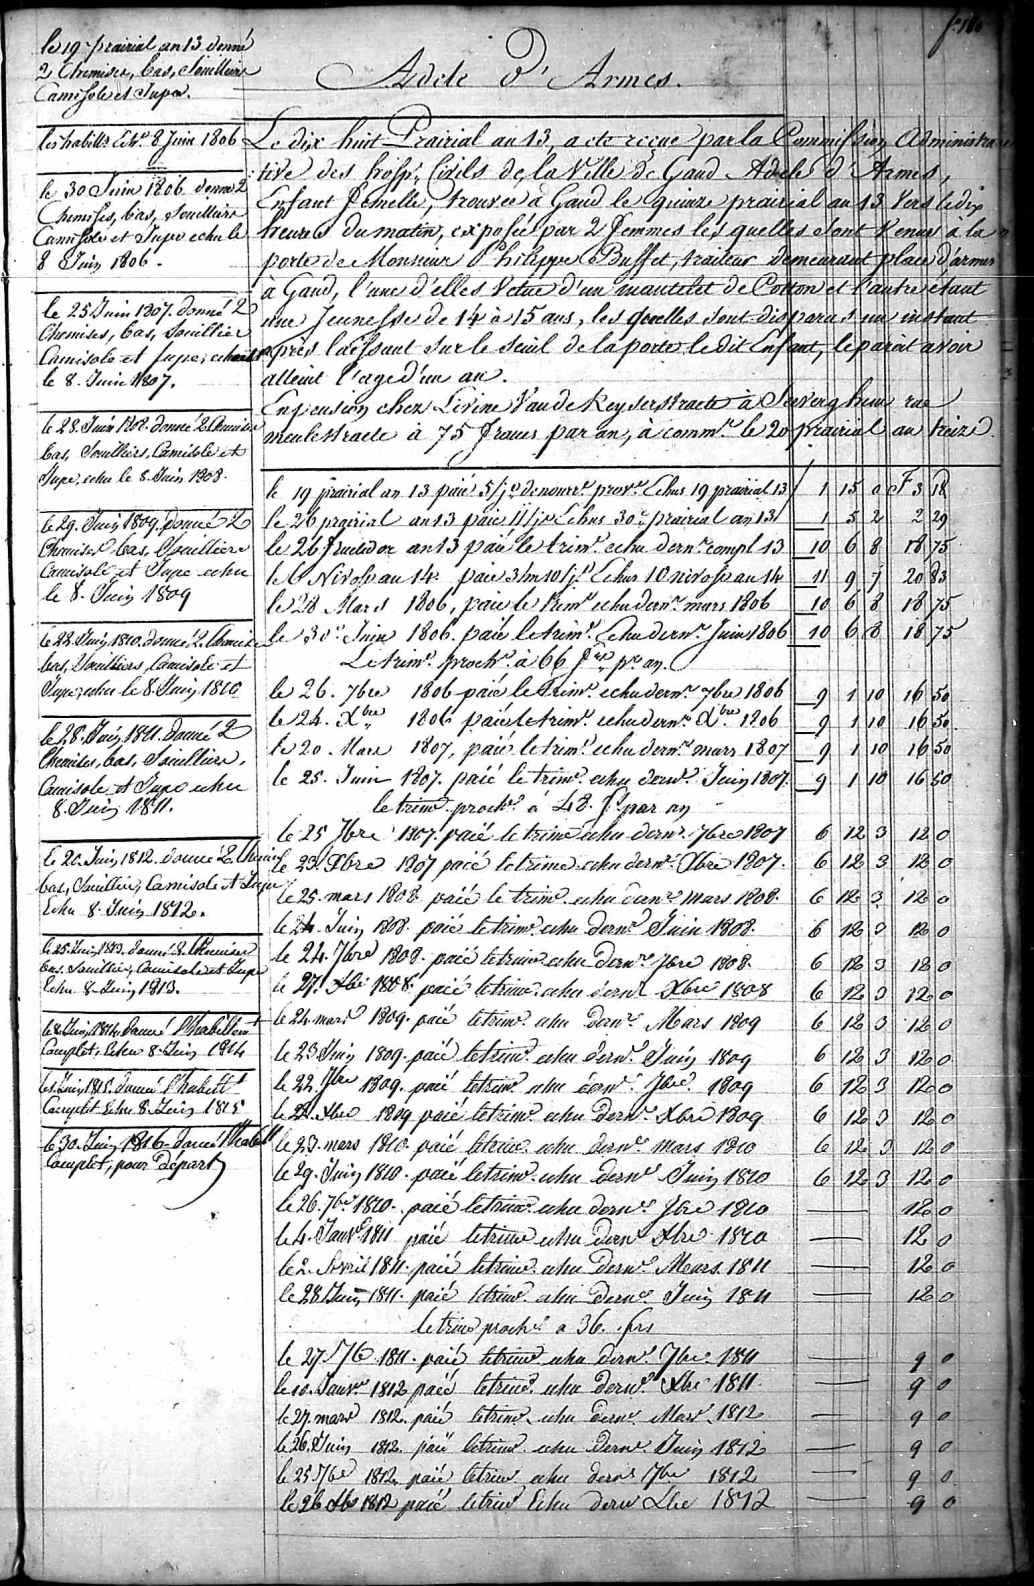 f. 160
Adele D'Armes.
le 19 prairial an 13 donné
2 Chemises, bas, Souilliers
Camisole et Jupe.
les habillts Echu 8 Juin 1806
le 30 Juin 1806 donné 2
Chemises, bas, Souilliers
Camisole et Jupe echu le
8 Juin 1806.
le 25 Juin 1807. donné 2
Chemises, bas, Souilliers
Camisole et Jupe, echus
le 8. Juin 1807.
le 28 Juin 1808. donné 2 Chemises
bas, Souilliers, Camisole et
Jupe, echu le 8. Juin 1808.
le 29. Juin 1809. donné 2
Chemises bas, Souilliers
Camisole et Jupe echu
le 8. Juin 1809
le 28. Juin 1810. donné 2. Chemises
bas, Souilliers, Camisole et
Jupe, echu le 8. Juin 1810
le 28. Juin 1811. donné 2
Chemises, bas, Souilliers,
Camisole et Jupe echu
8. Juin 1811.
le 26. Juin 1812. donné 2 Chemises
bas, Souilliers, Camisole et Jupe
Echu 8. Juin 1812.
le 25. Juin 1813. donné 2. Chemises
bas. Souilliers, Camisole et Jupe
Echu 8. Juin 1813.
le 8. Juin 1814. donné l'habillemt
Complet, Echu 8. Juin 1814
Juin 1815. donné l'habillt
Complet Echu 8. Juin 1815
le 30. Juin 1816. donné l'habillt
Complet, pour Départ
Le dix huit Prairial an 13, acte reçue par la Commission Administra
tive des hosp. Civils de la Ville de Gand Adele d'Armes,
Enfant femelle, trouvée à Gand le quinze prairial an 13 vers le dix
heures du matin, exposée par 2 femmes les quelles sont venus à la
porte de Monsieur Philippe Buffet, traiteur demeurant place d'armes
a Gand, l'une d'elles vetue d'un mantelet de Cotton et l'autre étant
une Jeunesse de 14 à 15 ans, les quelles sont disparus un instant
après laissant sur le seuil de la porte ledit Enfant, le parait avoir
atteint l'age d'un an.
En pension chez Livine Van de Keyserstraete à Severghem rue
meulestraete à 75 francs par an, à commr. le 20 prairial an treize.
le 19 prairial an 13 paié 5/jrs de nourre provre Echus 19 prairial 13 1 15 0 F 3 18
le 26 prairial an 13 paie 11/jrs Echus 30 prairial an 13 1 5 2 2 29
le 26 fructidor an 13 paié le trimr. echu dernr compl 13 10 6 8 18 75
le 6 Nivose an 14. paie 3/m 10/jrs Echus 10 nivose an 14 11 9 7 20 83
le 28 Mars 1806, paié le trimr echu dernr. mars 1806 10 6 8 18 75
le 30 Juin 1806. paié le trimr. Echu dernr. Juin 1806 10 6 8 18 75
Le trimr. prochr. à 66 frcs pr an.
le 26. 7bre 1806 paié le trimr. echu dernr. 7bre 1806 9 1 10 16 50
le 24. Xbre 1806 paié le trimr. echu dernr. Xbre 1806 9 1 10 16 50
le 20. Mars 1807, paié le trimr. echu dernr. mars 1807 9 1 10 16 50
le 25. Juin 1807. paié le trimr. echu dernr. Juin 1807. 9 1 10 16 50
le trimr. prochr. à 48. frs par an
le 25 7bre 1807. paié le trimr echu dernr. 7bre 1807 6 12 3 12 0
le 23. Xbre 1807 paié le trimr echu dernr. Xbre 1807. 6 12 3 12 0
le 25. mars 1808. paié le trimr. echu dernr mars 1808. 6 12 3 12 0
le 24. Juin 1808. paié le trimr. echu dernr. Juin 1808. 6 12 3 12 0
le 24. 7bre 1808. paié le trimr echu dernr. 7bre 1808. 6 12 3 12 0
le 27. Xbre 1808. paié le trimr. echu dernr Xbre 1808 6 12 3 12 0
le 24. mars 1809. paié le trimr. echu dernr. Mars 1809 6 12 3 12 0
le 23 Juin 1809. paié le trimr. echu dernr. Juin 1809 6 12 3 12 0
le 22. 7bre 1809. paié le trimr echu dernr. 7bre. 1809 6 12 3 12 0
le 22. Xbre 1809 paié le trimr. echu dernr. Xbre 1809 6 12 3 12 0
le 23. mars 1810. paié le trimr. echu dernr. mars 1810 6 12 3 12 0
le 29. Juin 1810. paié le trimr. echu dernr Juin 1810 6 12 3 12 0
le 26. 7bre 1810. paié le trimr. echu dernr 7bre 1810 12 0
le 4. Janvr 1811 paié le trimr echu dernr Xbre 1810 12 0
le 2. Avril 1811. paié le trimr. echu dernr. Mars. 1811 12 0
le 28 Juin 1811. paié le trimr. echu dernr. Juin 1811 12 0
le trimr prochr a 36. frs
le 27. 7b 1811. paié le trimr echu dernr. 7bre. 1811 9 0
le 10. Janvr 1812 paié le trimr. echu dernr. Xbre 1811. 9 0
le 27. mars 1812. paié le trimr. echu dernr. Mars. 1812 9 0
le 26. Juin 1812. paié le trimr. echu dernr Juin 1812 9 0
le 25. 7bre 1812. paié le trimr echu dernr 7bre 1812 9 0
le 26 Xbre 1812 paié le trimr Echu dernr Xbre 1812 9 0